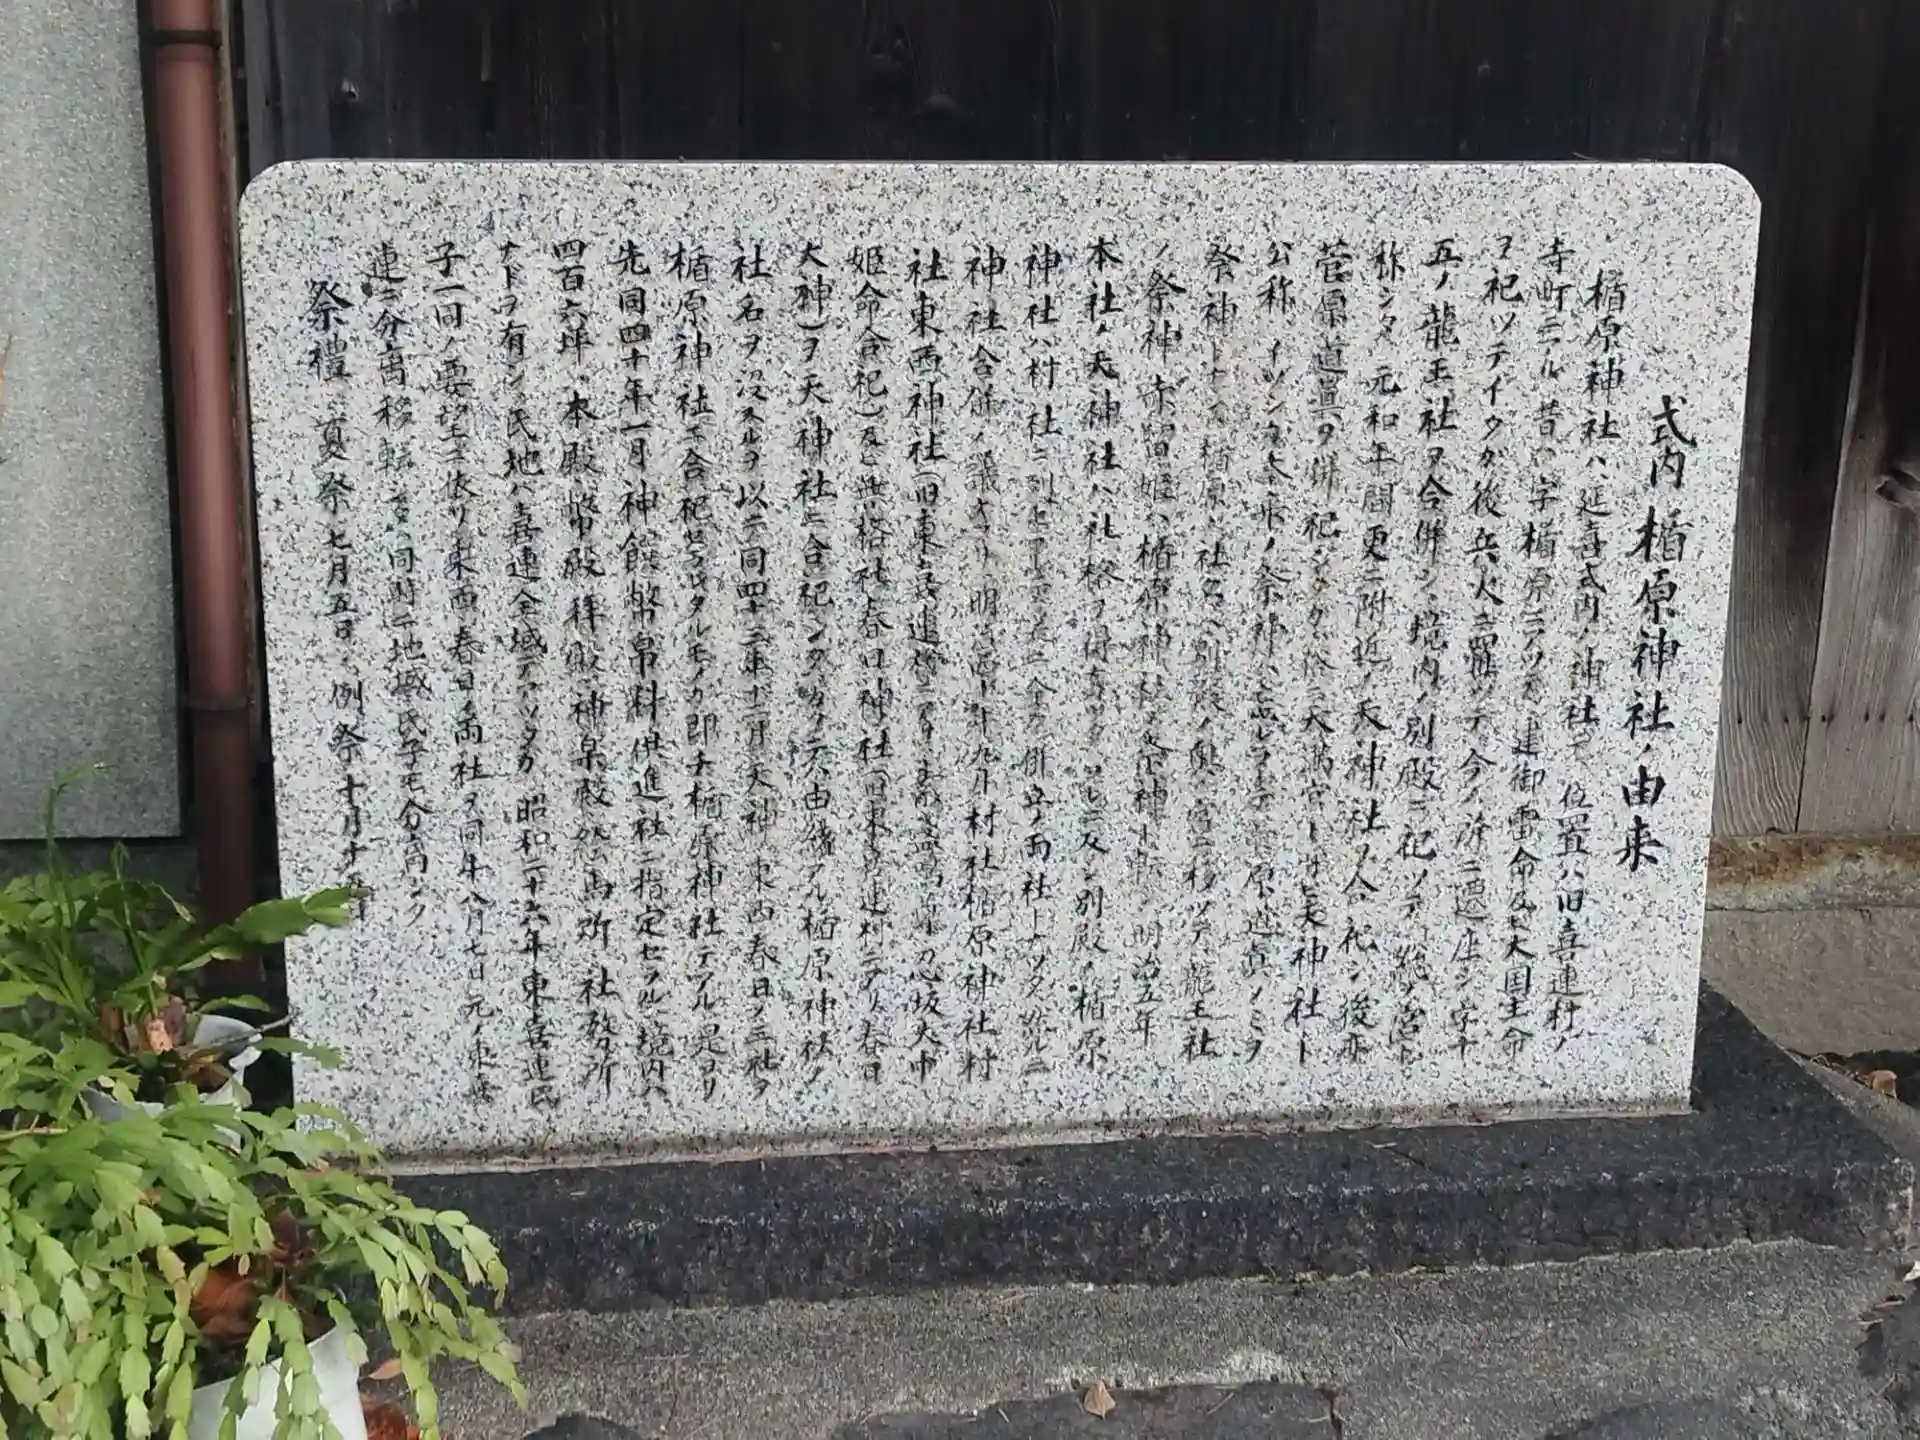 式内 楯原神社ノ由来
楯原神社ハ延喜式内ノ神社デ 位置ハ旧喜連村ノ
寺町ニアル 昔ハ字楯原ニアツテ 建御雷命及ビ大国主命
ヲ祀ツテイタガ後兵火ニ罹ツテ今ノ所ニ遷座シ字十
五ノ龍王社ヲ合併シ境内ノ別殿ニ祀ツテ 総ノ宮ト
称シタ 元和年間更ニ附近ノ天神社ヲ合祀シ後亦
菅原道真ヲ併祀シタガ 俗ニ天満宮ト呼ビ天神社ト
公称シイツシカ本来ノ祭神ハ忘レラレテ菅原道真ノミヲ
祭神トナス 楯原ノ社名ハ別殿ノ奥ノ宮ニ移ツテ 龍王社
ノ祭神赤留姫ハ楯原神社ノ祭神ト転シ 明治五年
本社ノ天神社ハ社格ヲ得 別殿ノ楯原
神社ハ村社ニ列セ 併立ノ両社トナツタ 然ルニ
神社合併ノ議 明治四十年九月 村社楯原神社 村
社東西神社(旧東喜連 忍坂大中
姫命合祀)及ビ無格社春日神社(旧東喜連村ニアリ 春日
大神)ヲ天神社ニ合祀シタ 由緒アル楯原神社ノ
社名ヲ没スルヲ以ニ同四十二年十二月天神 東西 春日ノ三社ヲ
楯原神社ニ合祀セラレタルモノガ即チ楯原神社デアル 是ヨリ
先同四十年一月神饌幣帛料供進社ニ指定セラル 境内ハ
四百六坪 本殿 幣殿 拝殿 神楽殿 絵馬所 社務所
ナドヲ有シ氏地ハ喜連全域デアツタガ 昭和二十六年東喜連氏
子一同ノ要望ニ依リ東西 春日ノ両社ヲ同年八月七日元ノ東喜
連ニ分离移転 同時ニ地域氏子モ分离シタ
祭禮 夏祭 七月五日 例祭 十月十